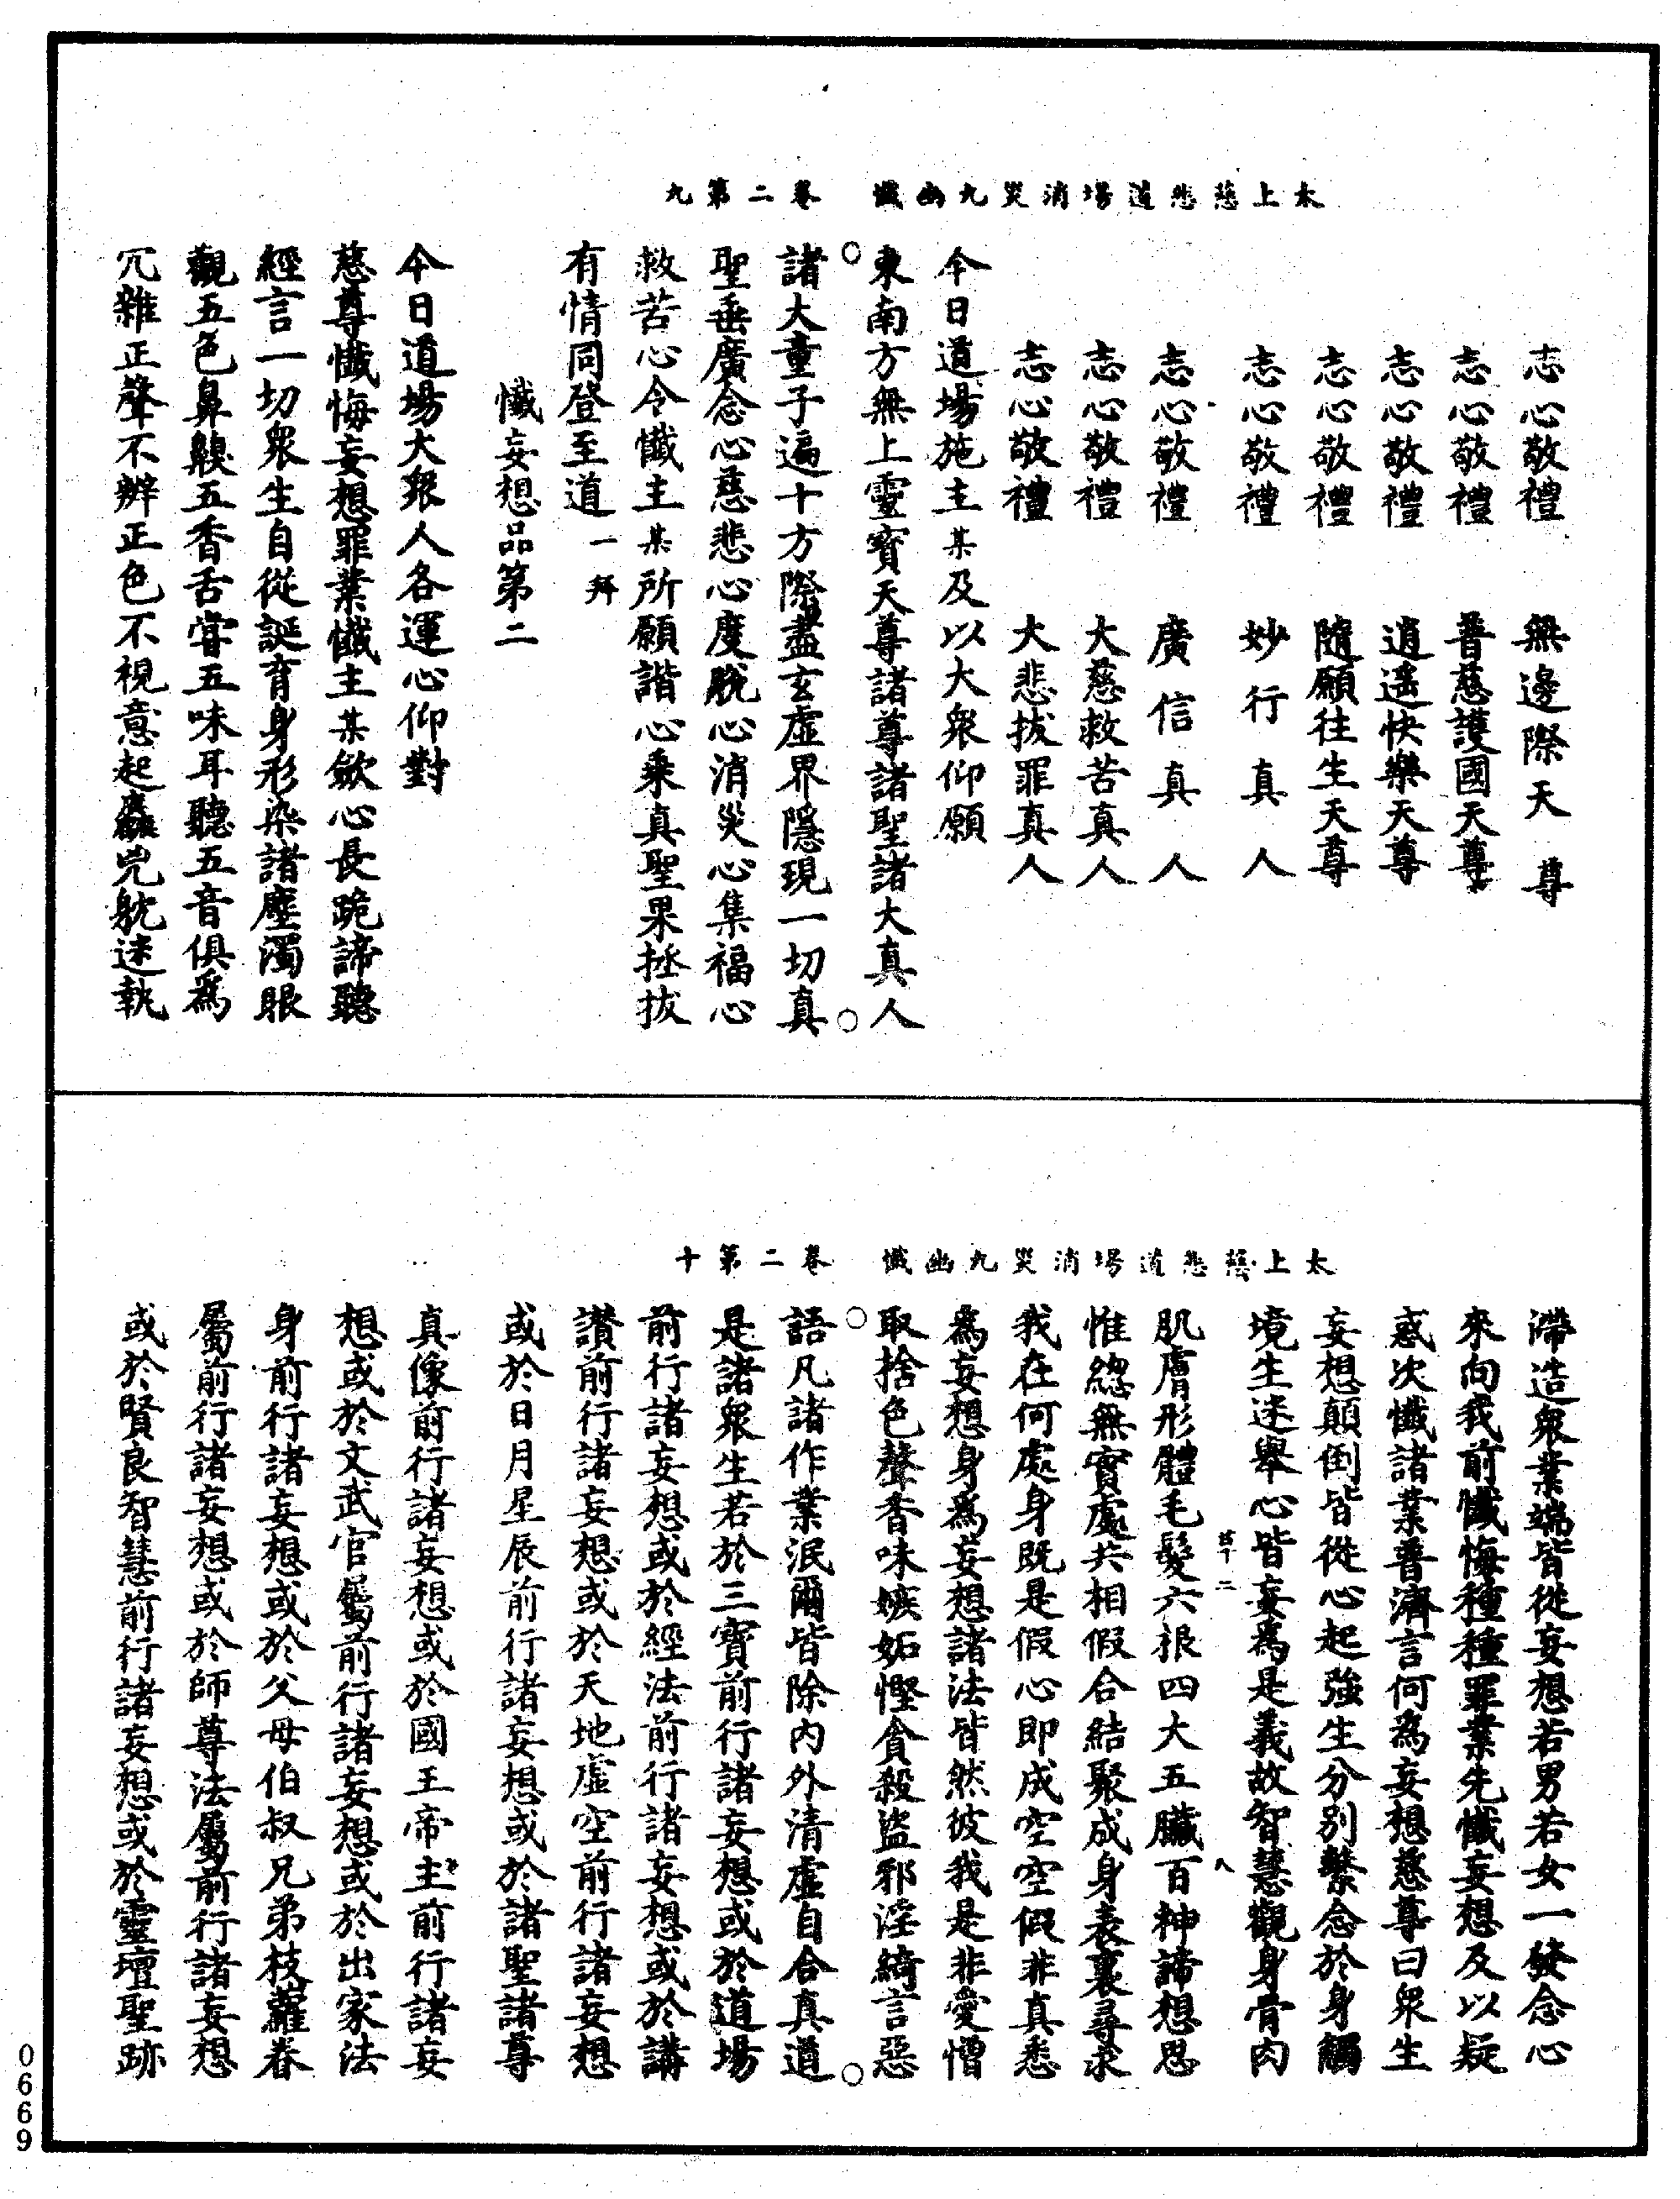 太上慈悲道場消災九幽懺 卷二第九
志心敬禮 無邊際天尊
志心敬禮 普慈護國天尊
志心敬禮 逍遥快樂天尊
志心敬禮 隨願往生天尊
志心敬禮 妙行真人
志心敬禮 廣信真人
志心敬禮 大慈救苦真人
志心敬禮 大悲拔罪真人
今日道場施主某及以大衆仰願
東南方無上靈寳天尊諸尊諸聖諸大真人
諸大童子遍十方際盡玄虛界隱現一切真
聖垂廣念心慈悲心度脫心消災心集福心
救苦心令懺主某所願諧心乘真聖果拯拔
有情同登至道 一拜
懺妄想品第二
今日道場大衆人各運心仰對
慈尊懺悔妄想罪業懺主某歛心長跪諦聽
經言一切衆生自從誕育身形染諸塵濁眼
觀五色鼻齅五香舌嘗五味耳聽五音俱爲
冗雜正聲不辨正色不視意起麤兇躭迷執
太上慈悲道場消災九幽懺 卷二第十
滯造衆業端皆從妄想若男若女一發念心
來向我前懺悔種種罪業先懺妄想及以疑
惑次懺諸業普濟言何為妄想慈尊曰衆生
妄想顛倒皆從心起強生分別繫念於身觸
境生迷舉心皆妄為是義故智慧觀身骨肉
肌膚形體毛髮六根四大五臟百神諦想思
惟緫無實處共相假合結聚成身表裏尋求
我在何處身既是假心即成空空假非真悉
爲妄想身爲妄想諸法皆然彼我是非愛憎
取捨色聲香味嫉妬慳貪殺盜邪淫綺言惡
語凡諸作業泯爾皆除内外清虛自合真道
是諸衆生若於三寳前行諸妄想或於道場
前行諸妄想或於經法前行諸妄想或於講
讚前行諸妄想或於天地虛空前行諸妄想
或於日月星辰前行諸妄想或於諸聖諸尊
真像前行諸妄想或於國王帝主前行諸妄
想或於文武官屬前行諸妄想或於出家法
身前行諸妄想或於父母伯叔兄弟枝蘿眷
屬前行諸妄想或於師尊法屬前行諸妄想
或於賢良智慧前行諸妄想或於靈壇聖跡
0669